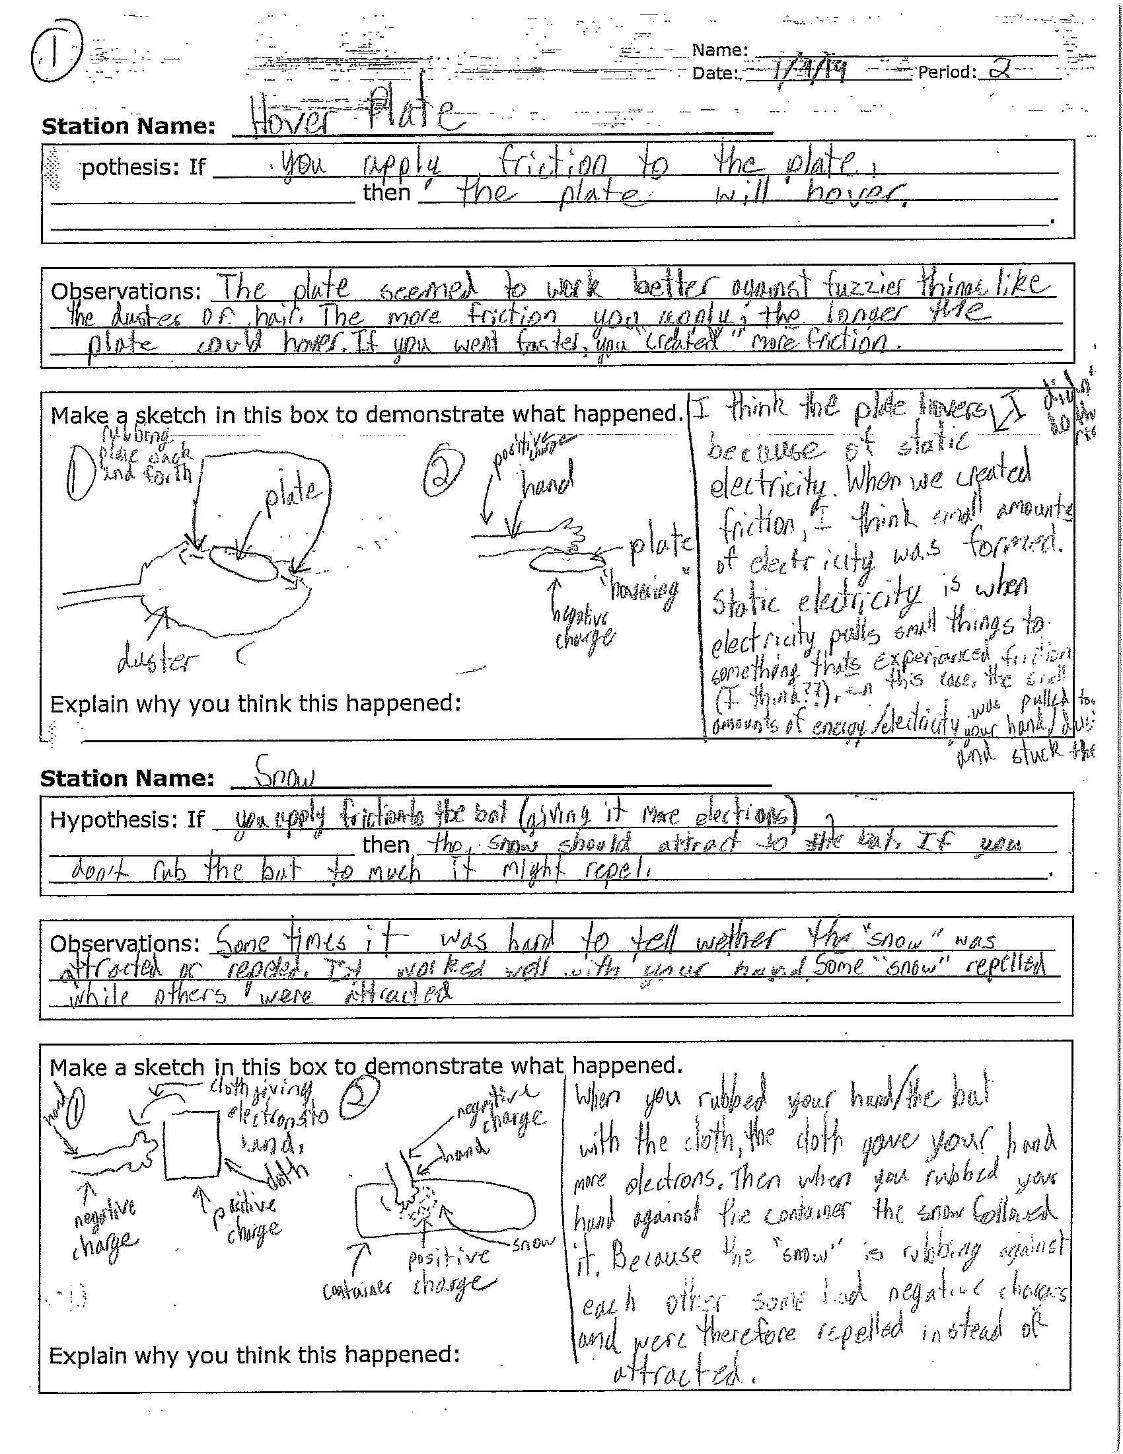 1
Name:
Date: 1/9/19 Period: 2
Station Name: Hover Plate
pothesis: If you apply friction to the plate,
then the plate will hover.
Observations: The plate seemed to work better against fuzzier things like
the duster or hair. The more friction you apply, the longer the
plate could hover. If you went faster, you "created" more friction.
Make a sketch in this box to demonstrate what happened.
1
rubbing
plate back
and forth
plate
duster
2
positive
charge
hand
plate
"hovering"
negative
charge
I think the plate hovers
because of static
electricity. When we created
friction, I think small amounts
of electricity was formed.
Static electricity is when
electricity pulls small things to
something thats experianced friction
(I think??). In this case, the small
amounts of energy/electricity was pulled to
your hand/
and stuck
I
Explain why you think this happened:
Station Name: Snow
Hypothesis: If you apply friction to the bat (giving it more elections)
then the snow should attract to the bat. If you
don't rub the bat to much it might repel.
Observations: Some times it was hard to tell wether the "snow" was
attracted or repeled. It worked well with your hand. Some "snow" repelled
while others were attracted
Make a sketch in this box to demonstrate what happened.
1
hand
cloth giving
electrons to
hand.
cloth
negative
charge
positive
charge
2
negitive
charge
hand
snow
positive
charge
container
When you rubbed your hand/the bat
with the cloth, the cloth gave your hand
more electrons. Then when you rubbed your
hand against the container the snow followed
it. Because the "snow" is rubbing against
each other some had negative charges
and were therefore repelled instead of
attracted.
Explain why you think this happened: